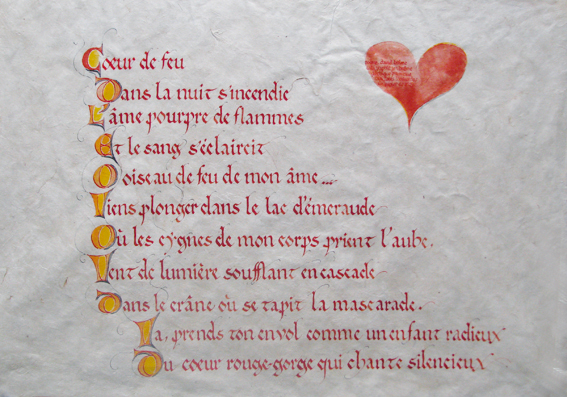 Coeur de feu
Dans la nuit s'incendie
L'âme pourpre de flammes
Et le sang s'éclaircit
O oiseau de feu de mon âme...
Viens plonger dans le lac d'émeraude
Où les cygnes de mon corps prient l'aube.
Vent de lumière soufflant en cascade
Dans le crâne où se tapit la mascarade.
Va, prends ton envol comme un enfant radieux
Du coeur rouge-gorge qui chante silencieux